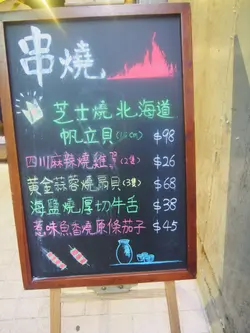 串燒
芝士燒北海道
帆立貝 $98
四川麻辣燒雞(2隻) $26
黃金蒜蓉燒扇貝 (3隻) $68
海鹽燒厚切牛舌 $38
惹味魚香燒原條茄子 $45